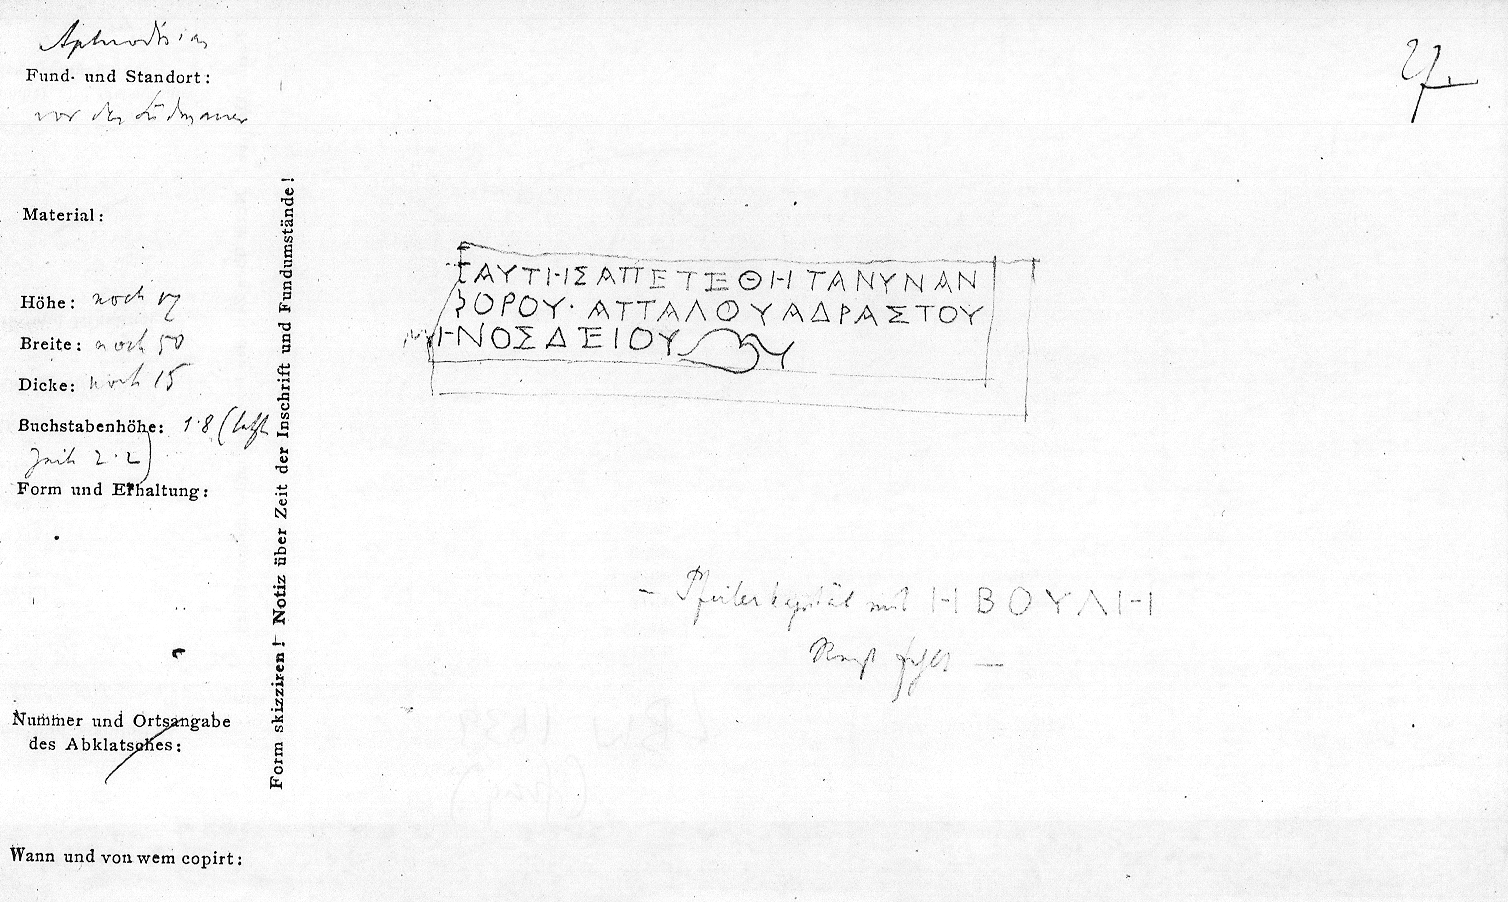 Aphrodisias
Fund- und Standort:
vor der Südmauer
27.
Material:
Höhe: noch 17
Breite: noch 50
Dicke: noch 15
Buchstabenhöhe: 1.8 (letzte
Zeile 2.2)
Form und Erhaltung:
Nummer und Ortsangabe
des Abklatsches:
Wann und von wem copirt:
Form skizziren! Notiz über Zeit der Inschrift und Fundumstände!
ΕΑΥΤΗΣΑΠΕΤΕΘΗΤΑΝΥΝΑΝ
ΟΡΟΥ·ΑΤΤΑΛΟΥΑΔΡΑΣΤΟΥ
ΗΝΟΣΔΕΙΟΥ Υ
– Pfeilerkapitäl mit ΗΒΟΥΛΗ
Rest fehlt –